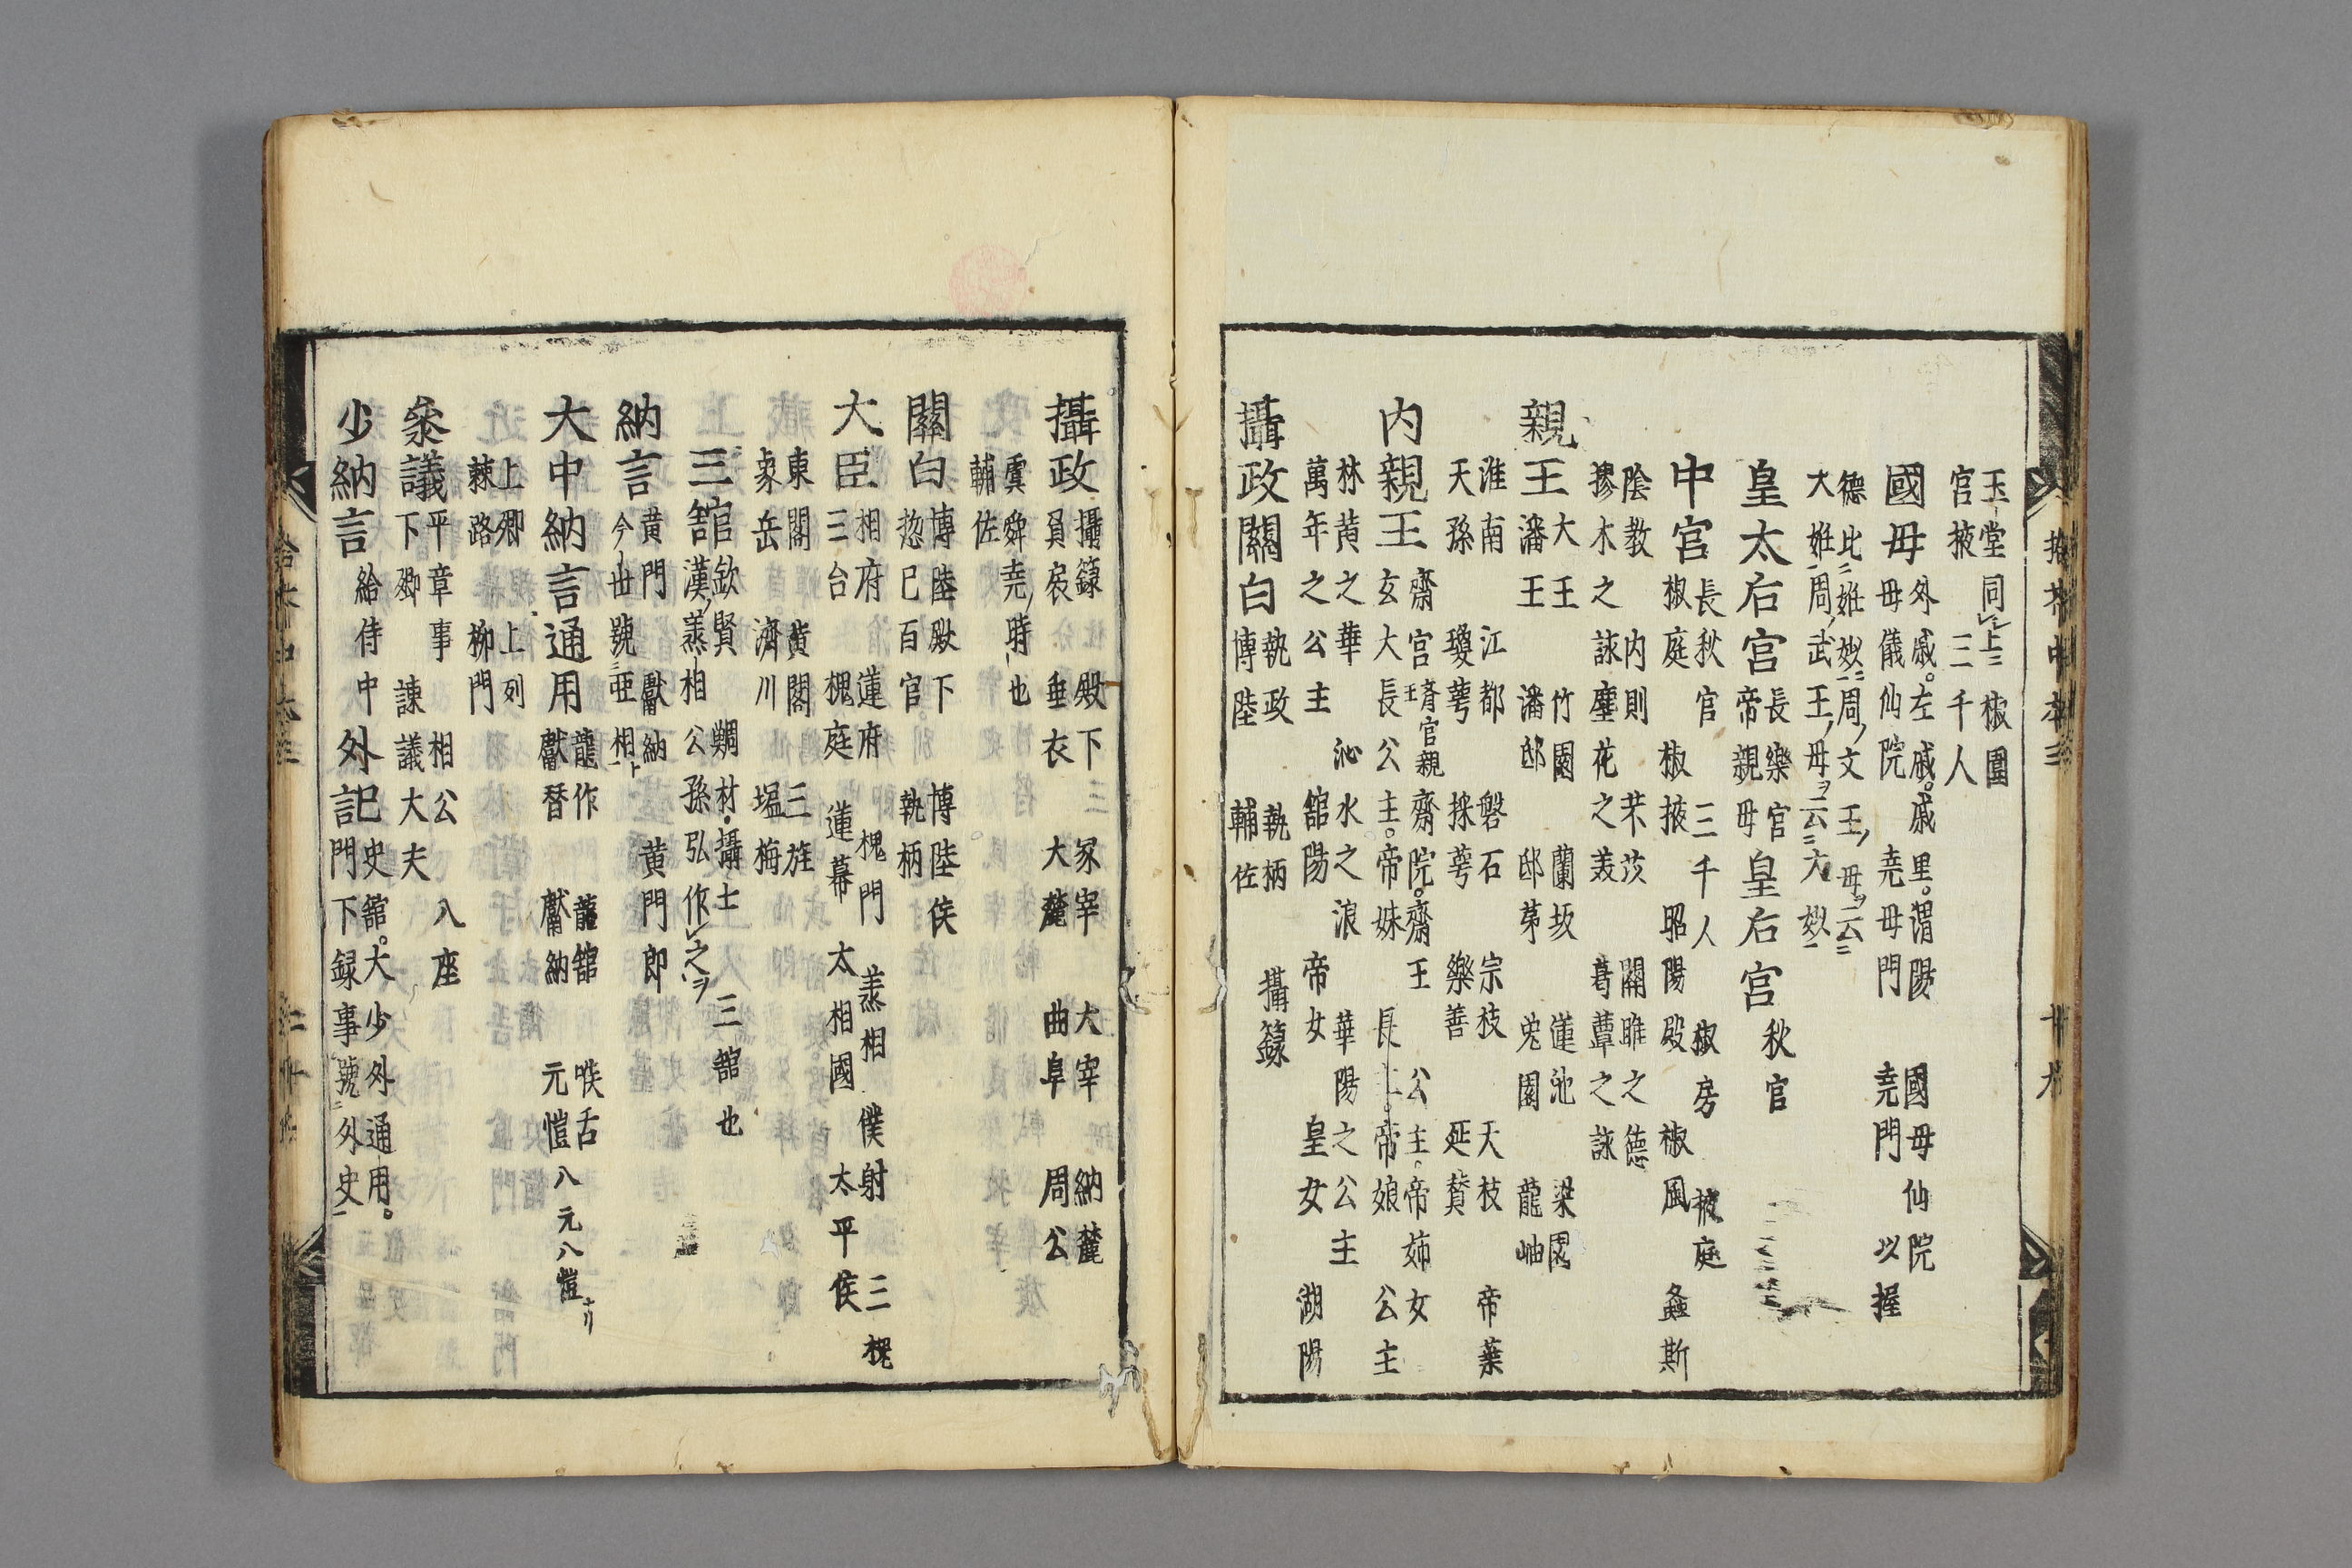 玉堂同上 椒圍
官掖 三千人
國母 外戚。左戚。戚里。渭陽 國母仙院
母儀 仙院 堯母門 堯門 以握
德比姙姒周文王母云
大姙周武王母ヲ云大姒
皇太后宮 長樂官 皇后宮 秋官
帝親母
中宮 長秋官 三千人 椒房 掖庭
椒庭 椒掖 昭陽殿 椒風 螽斯
陰教 内則 芣苡 關雎之德
樛木之詠 塵花之美 葛蕈之詠
親王 大王 竹園 蘭坂 蓮池 梁園
潘王 潘邸 邸茅 兎園 龍岫
淮南 江都 磐石 宗枝 天枝 帝葉
天孫 瓊萼 採萼 樂善 延賛
内親王 齋宮 齋院。齋王 公主 帝姉女
玄大長公主。帝妹 長主。帝娘 公主
林黄之華 沁水之浪 華陽之公主
萬年之公主 舘陽 帝女 皇女 湖陽
攝政關白 執政 執柄 攝籙
博陸 輔佐
攝政 攝籙 殿下 冢宰 大宰 納麓
負扆 垂衣 大麓 曲阜 周公
虞舜堯ノ時也
輔佐
關白 博陸殿下 博陸侯
惣己百官 執柄
大臣 相府 蓮府 槐門 烝相 僕射 三槐
三台 槐庭 蓮幕 太相國 太平侯
東閣 黄閣 三旌
象岳 濟川 塩梅
三舘 欽賢 翹材 攝士 三舘也
漢烝相公孫弘作之ヲ
納言 黄門 獻納 黄門郎
今世號亞相ト
大中納言通用 龍作 龍舘 喉舌
獻替 獻納 元愷 八元八愷ナリ
上卿 上列
棘路 柳門
叅議 平章事 相公 八座
下卿 諫議大夫
少納言 給侍中 外記 史舘。大少外通用。
門下録事號外史